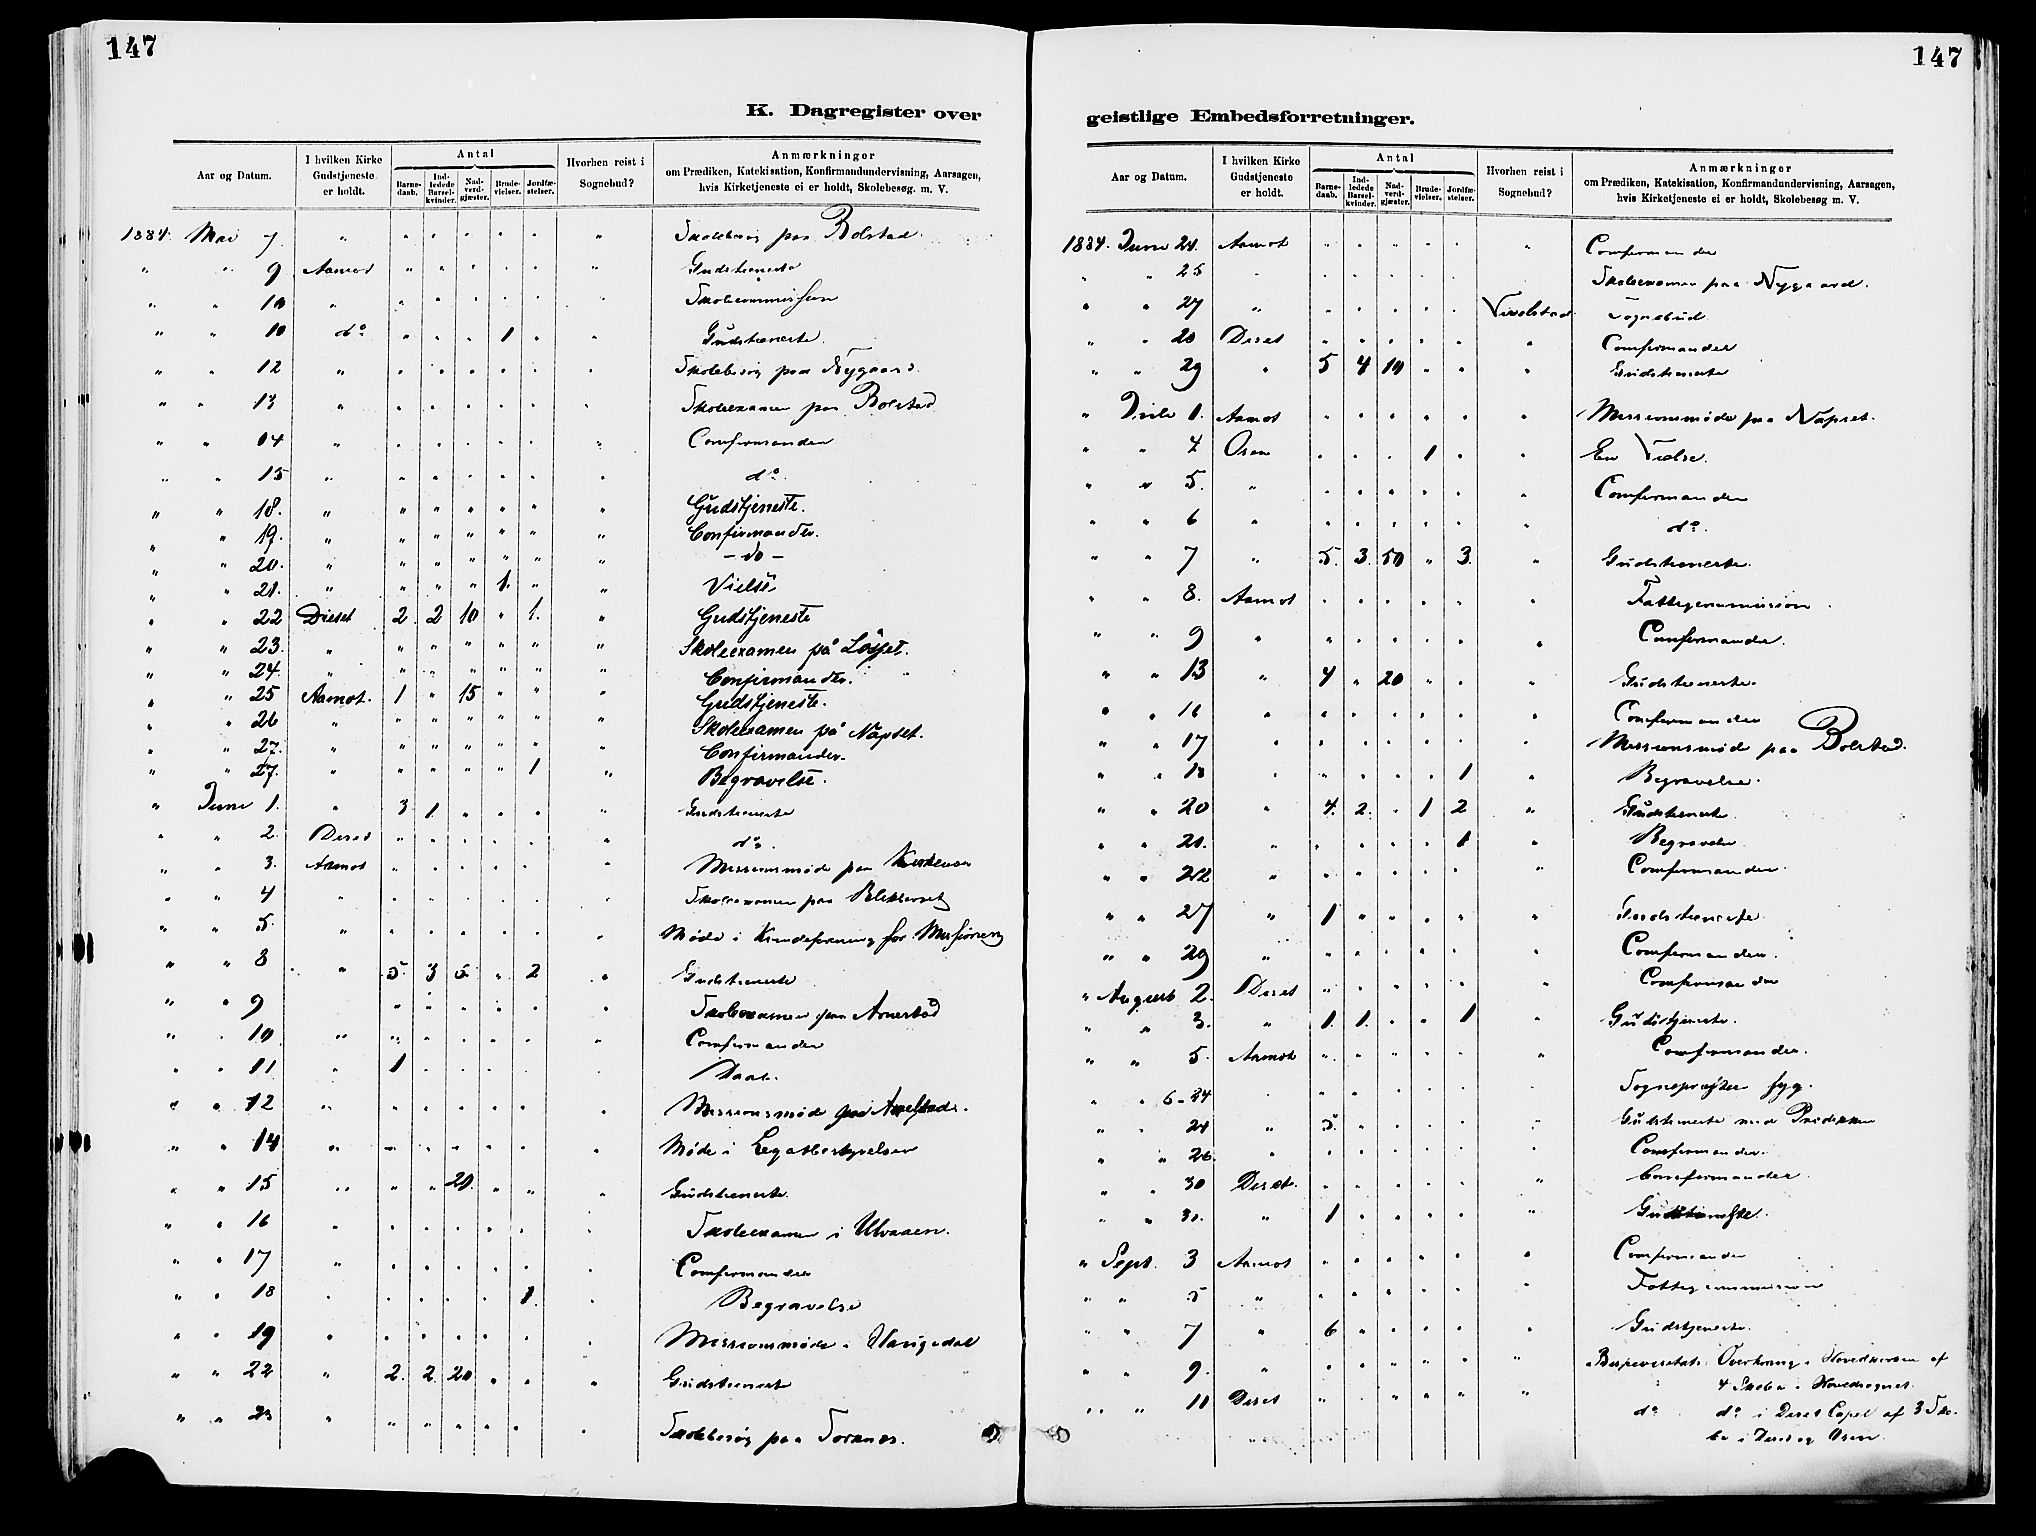 147
K. Dagregister over
Aar og Datum. I hvilken Kirke Gudstjeneste er holdt. Antal Barnedaab. Indledede Barselkvinder. Nadverdgjæster. Brudevielser. Jordfæstelser. Hvorhen reist i Sognebud? Anmærkninger om Prædiken, Katekisation, Konfirmandundervisning, Aarsagen, hvis Kirketjeneste ei er holdt, Skolebesøg. m. V.
1884. Mai 7. " " " " " " " Skolebesøg paa Bolstad
" " 9 Aamot " " " " " " Gudstieneste
" " 10 " " " " " " " Skolecommission
" " 10 do " " " 1 " " Gudstieneste
" " 12 " " " " " " " Skolebesøg paa Nygaard.
" " 13 " " " " " " " Skoleexamen paa Bolstad
" " 14 " " " " " " " Confirmander
" " 15 " " " " " " " do
" " 18. " " " " " " " Gudstjeneste.
" " 19. " " " " " " " Confirmander.
" " 20. " " " " " " " - do -
" " 21. " " " " 1. " " Vielse
" " 22 Dieset 2 2 10 " 1. " Gudstjeneste
" " 23. " " " " " " " Skoleexamen på Løsset.
" " 24. " " " " " " " Confirmander.
" " 25 Aamot. 1 " 15 " " " Gudstjeneste.
" " 26 " " " " " " " Skoleexamen på Napset.
" " 27. " " " " " " " Confirmander.
" " 27. " " " " " 1 " Begravelse.
" Juni 1. " 3 1. " " " " Gudstieneste
" " 2. Deset " " " " " " do.
" " 3. Aamot " " " " " " Missionsmøde paa
" " 4 " " " " " " " Skoleexamen paa
" " 5. " " " " " " " Møde i Kvindeforening for Missionen
" " 8 " 5. 3 5. " 2 " Gudstieneste
" " 9 " " " " " " Skoleexamen paa Arnestad
" " 10 " " " " " " " Confirmander
" " 11 " 1 " " " " " Daab.
" " 12 " " " " " " " Missionsmøde paa
" " 14 " " " " " " " Møde i Legatbestyrelsen
" " 15 " " " 20. " " " Gudstieneste.
" " 16 " " " " " " " Skoleexamen i Ulvaaen.
" " 17 " " " " " " " Confirmander
" " 18 " " " " " 1. " Begravelse
" " 19 " " " " " " " Missionsmøde i Haugedal
" " 22 " 2. 2 20 " " " Gudstieneste
" " 23 " " " " " " " Skolebesøg paa Torsnes.
147
geistlige Embedsforretninger.
Aar og Datum. I hvilken Kirke Gudstjeneste er holdt. Antal Barnedaab. Indledede Barselkvinder. Nadverdgjæster. Brudevielser. Jordfæstelser. Hvorhen reist i Sognebud? Anmærkninger om Prædiken, Katekisation, Konfirmandundervisning, Aarsagen, hvis Kirketjeneste ei er holdt, Skolebesøg m. V.
1884. Juni 24. Aamot " " " " " " Confirmander
" " 25 " " " " " " Skoleexamen paa Nygaard.
" " 27 " " " " " " Sognebud
" " 28 Deset " " " " " " Confirmander
" " 29 " 5 4 10 " " " Gudstieneste
" Juli 1. Aamot " " " " " " Missionsmøde paa Napset.
" " 4 Osen " " " 1 " " En Vielse.
" " 5. " " " " " " " Confirmander
" " 6 " " " " " " " do.
" " 7 " 5. 3. 50 " 3. " Gudstieneste.
" " 8. Aamot " " " " " " Fattigcommission.
" " 9 " " " " " " " Confirmander.
" " 13 " 4 " 20 " " " Gudstieneste.
" " 16 " " " " " " " Confirmander
" " 17 " " " " " " " Missionsmøde paa Bolstad.
" " 18 " " " " " 1 " Begravelse.
" " 20 " 4. 2. " 1 2 " Gudstieneste
" " 21. " " " " " 1 " Begravelse
" " 22 " " " " " " " Confirmander.
" " 27 " 1 " " " " " Gudstieneste
" " 29 " " " " " " " Confirmander.
" August 2. Deset " " " " " " Confirmander
" " 3. " 1. 1. " " 1 " Gudstjeneste.
" " 5. Aamot " " " " " " Confirmander.
" " 6-24 " " " " " " Sognepræsten syg.
" " 24 " 5. " " " " " Gudstieneste med Prædiken
" " 26. " " " " " " " Confirmander.
" " 30 Deset. " " " " " " Confirmander
" " 31. " 1 " " " " " Gudstieneste.
" Sept. 3 Aamot " " " " " " Confirmander
" " 5 " " " " " " " Fattigcommission
" " 7 " 6 " " " " " Gudstjeneste.
" " 9. " " " " " " " Overhøring i Hovedkirken af
4 Skoler i Hovedsognet.
" " 11 Deset " " " " " " do do i Deset Capel af 3 Sko-
ler i Deset og Osen